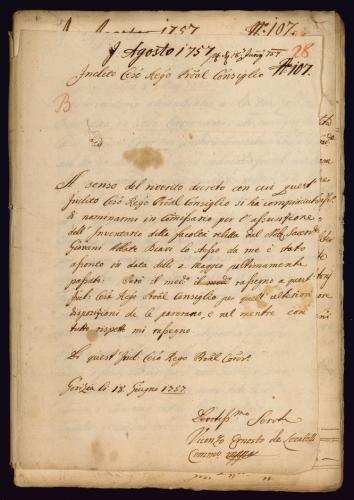 Agosto 1757 N: 107.
Agosto 1757 28
Indito Ces: Regio Proãl Consiglio N: 107.
B
Al senso del riverito decreto con cui quest'
Indito Ces: Regio Proãl Consiglio si ha compiaciuto
di nominarmi in Comissario per l'assunzione
dell'Inventario della facoltà relitta dal Sacer:
Giovanni Abbate Biavi lo stesso da me è stato
assonto in data delli 2. Maggio pultimamente
passato: Così il med: rassegno a quest'
Indi: Ces: Regio Proãl Consiglio per quell'ulteriori
disposizioni che le pareranno, e nel mentre con
tutto rispetto mi rassegno
Di quest' Ind: Ces: Regio Proãl Cons:
Gorizia li 18. Giugno 1757
Serv:
Ernesto de Locatelli